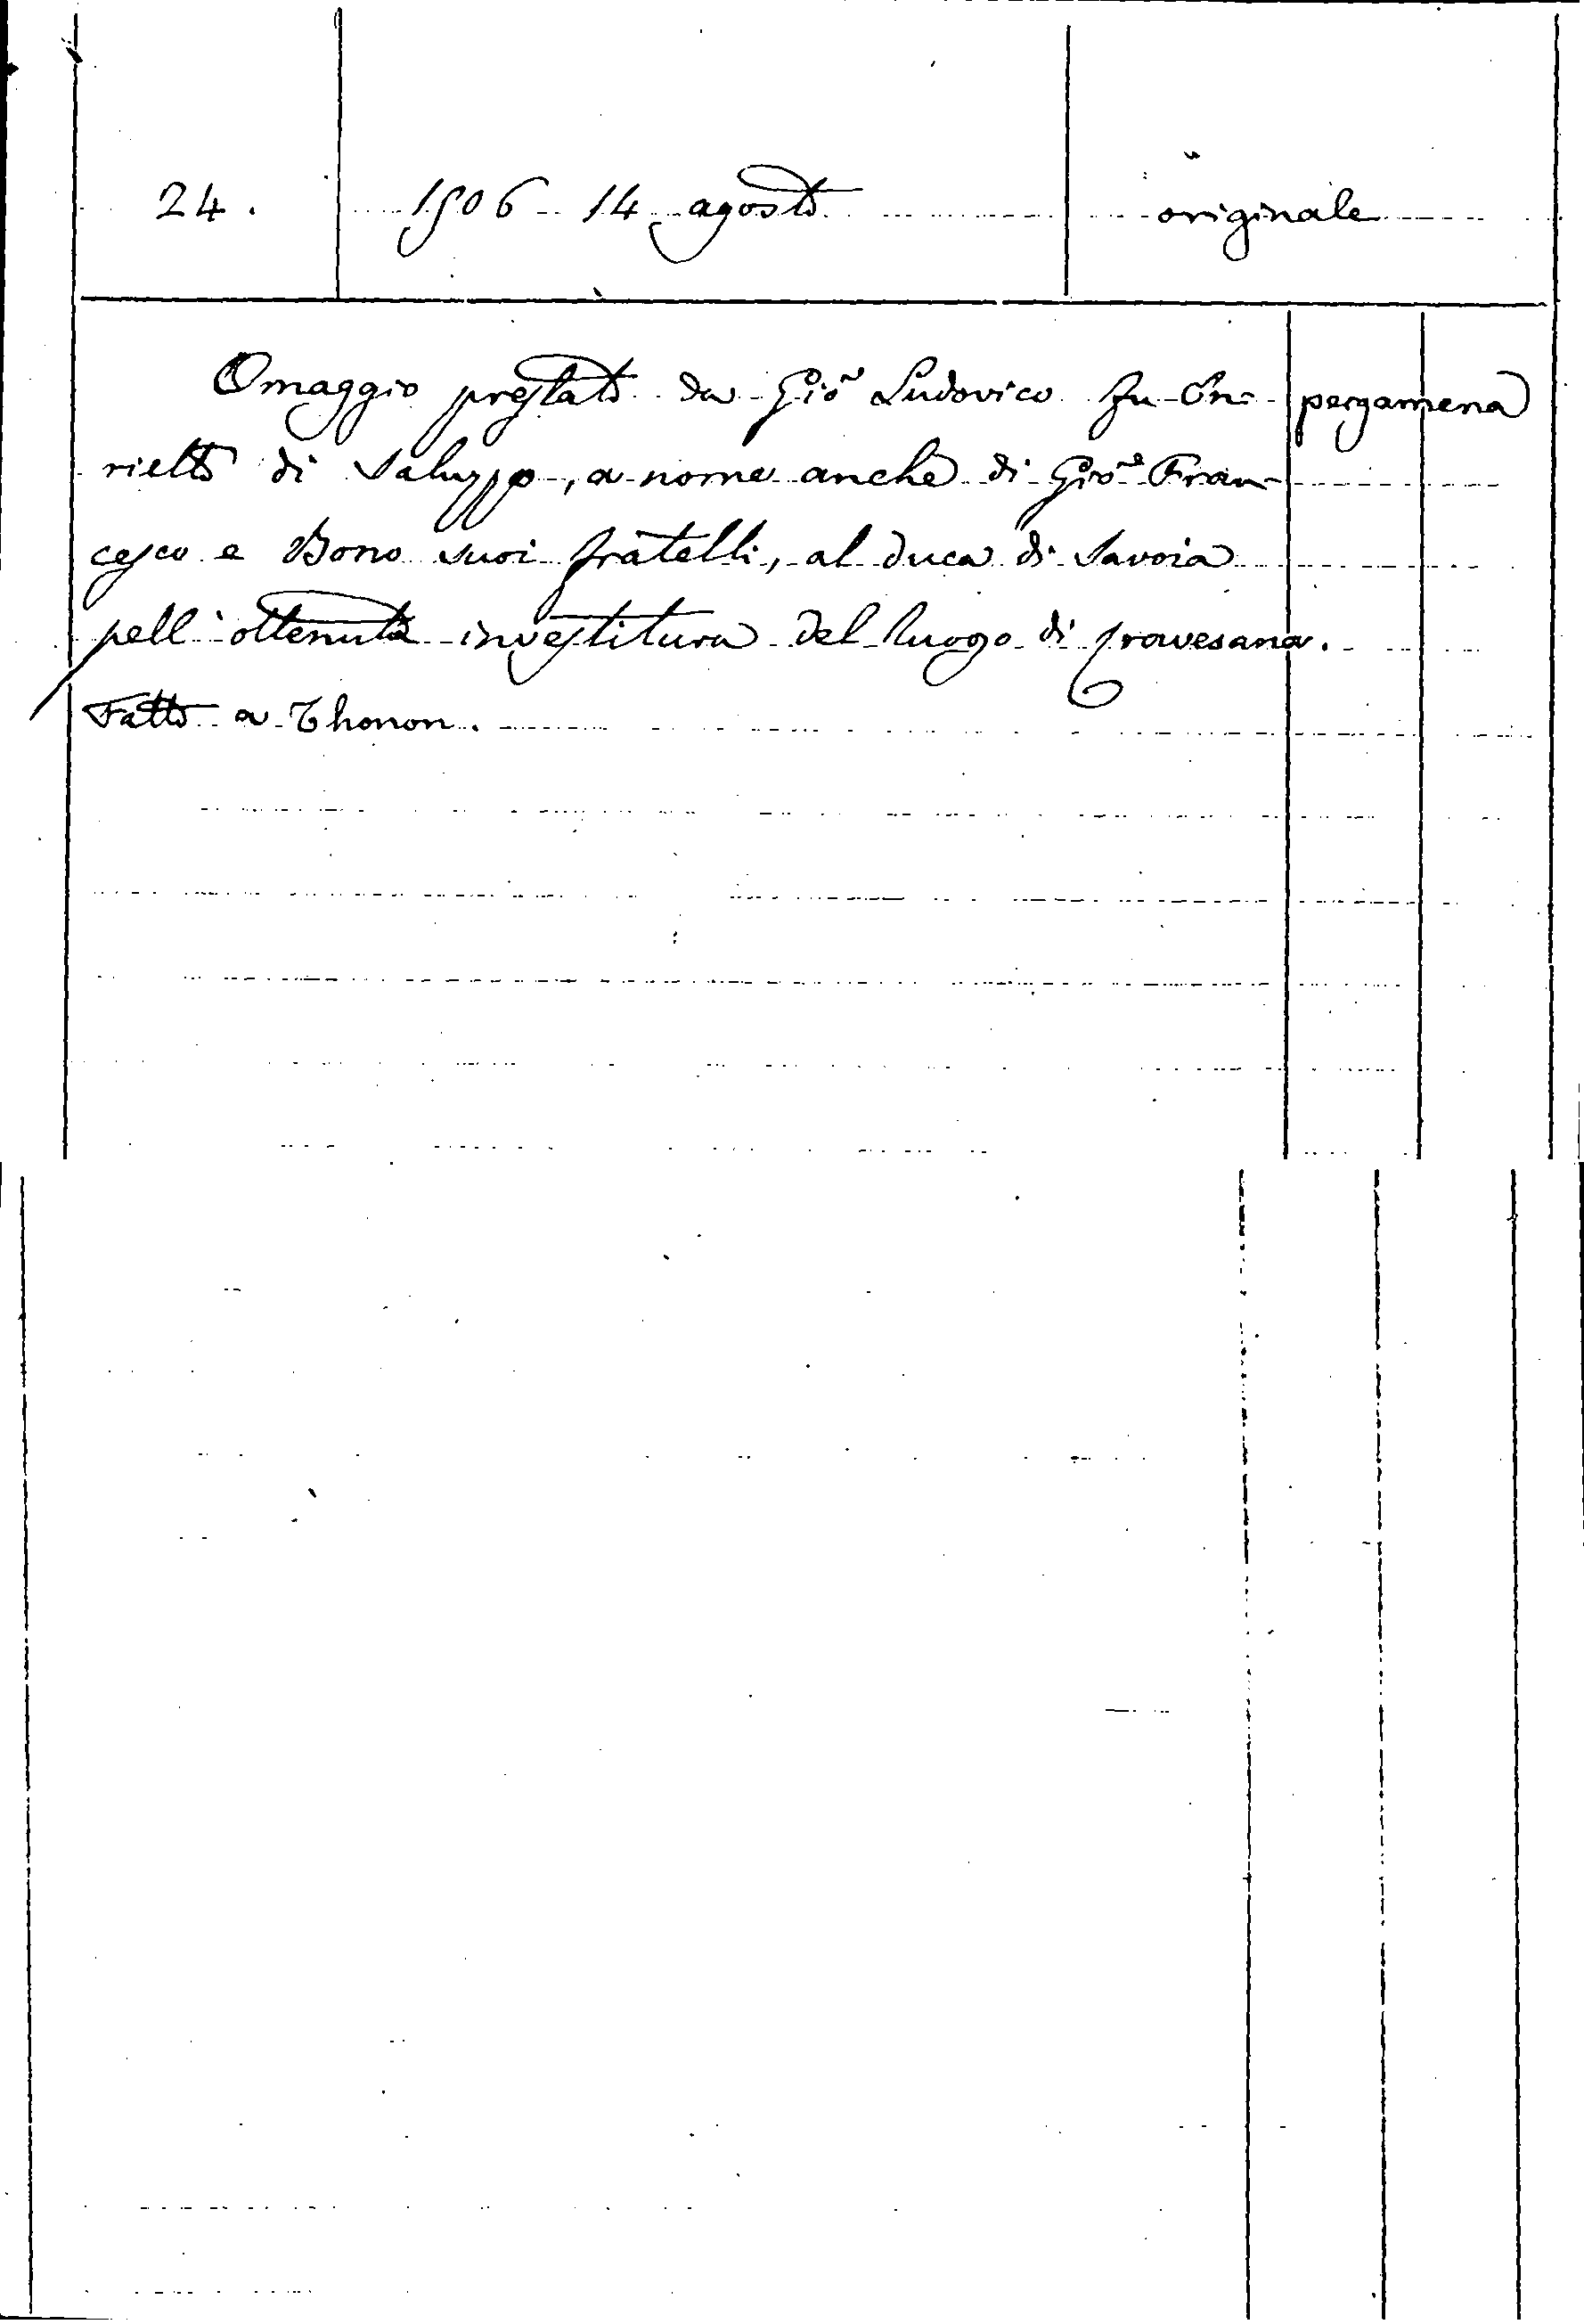 24. 1506 14 agosto originale
Omaggio prestato da Gio Ludovico fu En- pergamena
rietto di Saluzzo, a nome anche di Gio Fran-
cesco e Bono suoi fratelli, al duca di Savoia
pell'ottenuta investitura del luogo di Cravesana.
Fatto a Thonon.